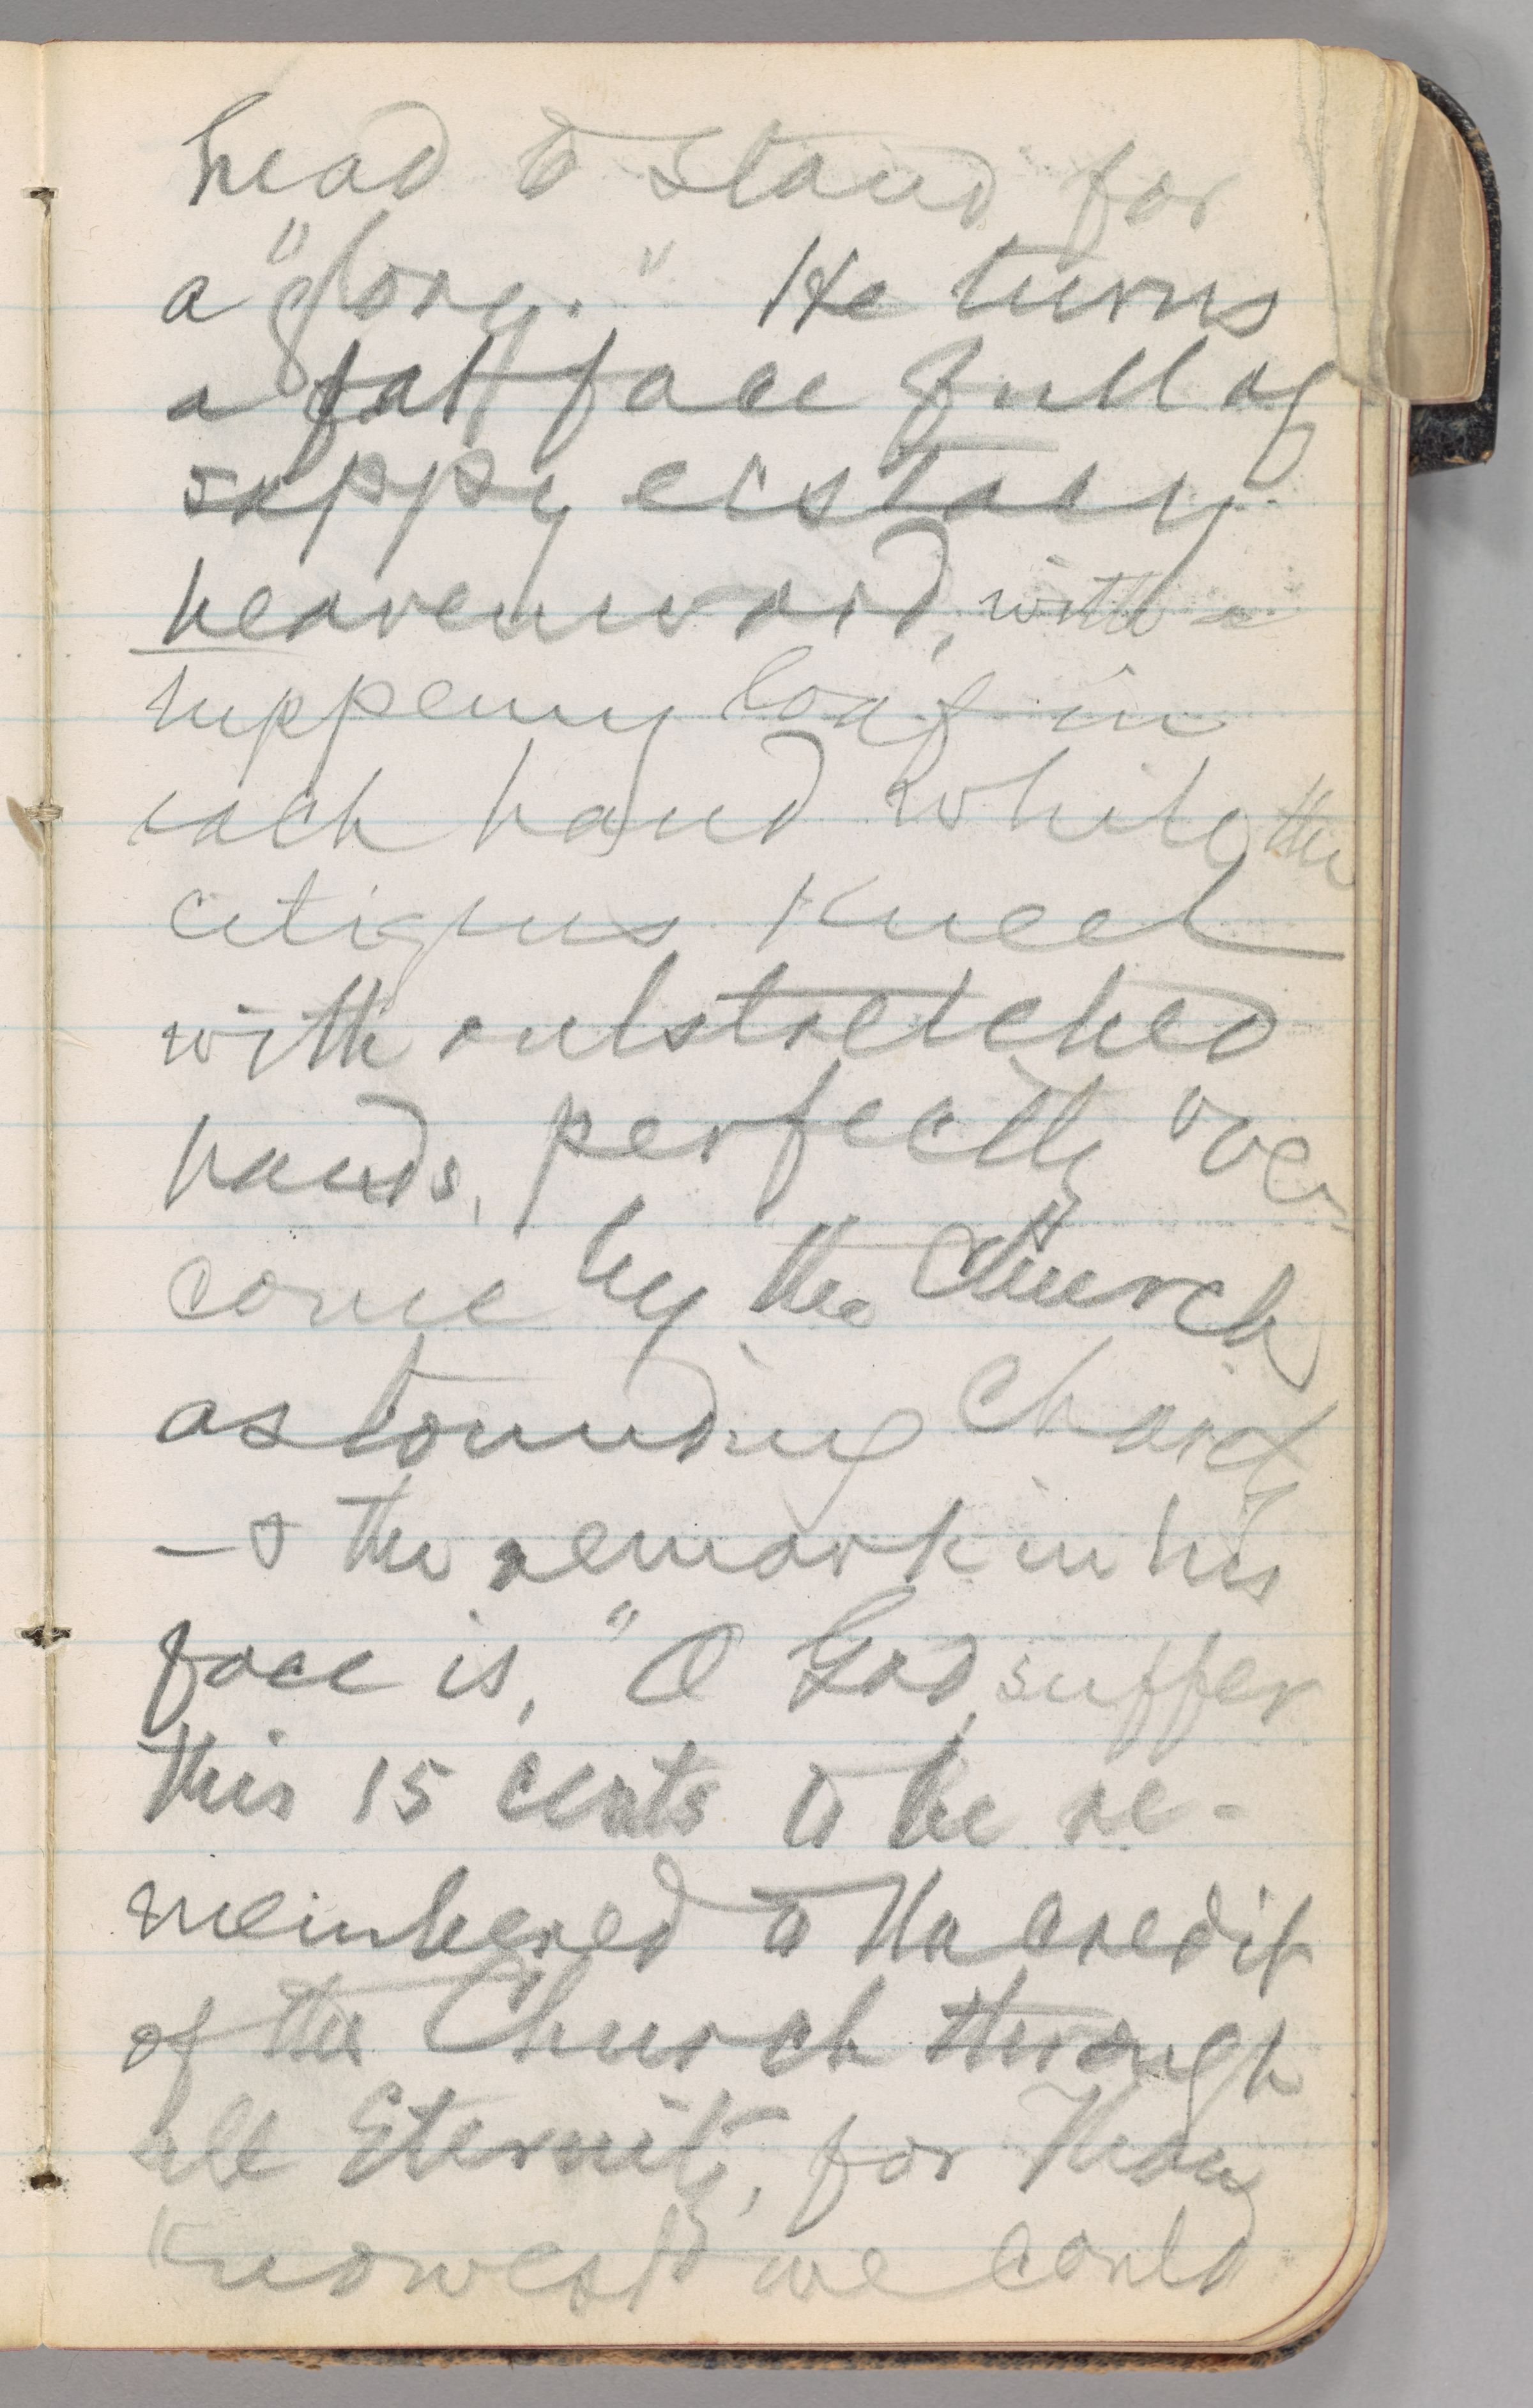 head to stand for
a "glory." He turns
a fat face full of
sappy ecstacy
heavenward, with a
tuppenny loaf in
each hand while the
citizens kneel
with outstretched
hands, perfectly over-
come by the Church
astounding charity
— & the remark in his
face is, "O God, suffer
this 15 cents to be re-
membered to the credit
of the Church through
all Eternity, for Thou
knowest we could